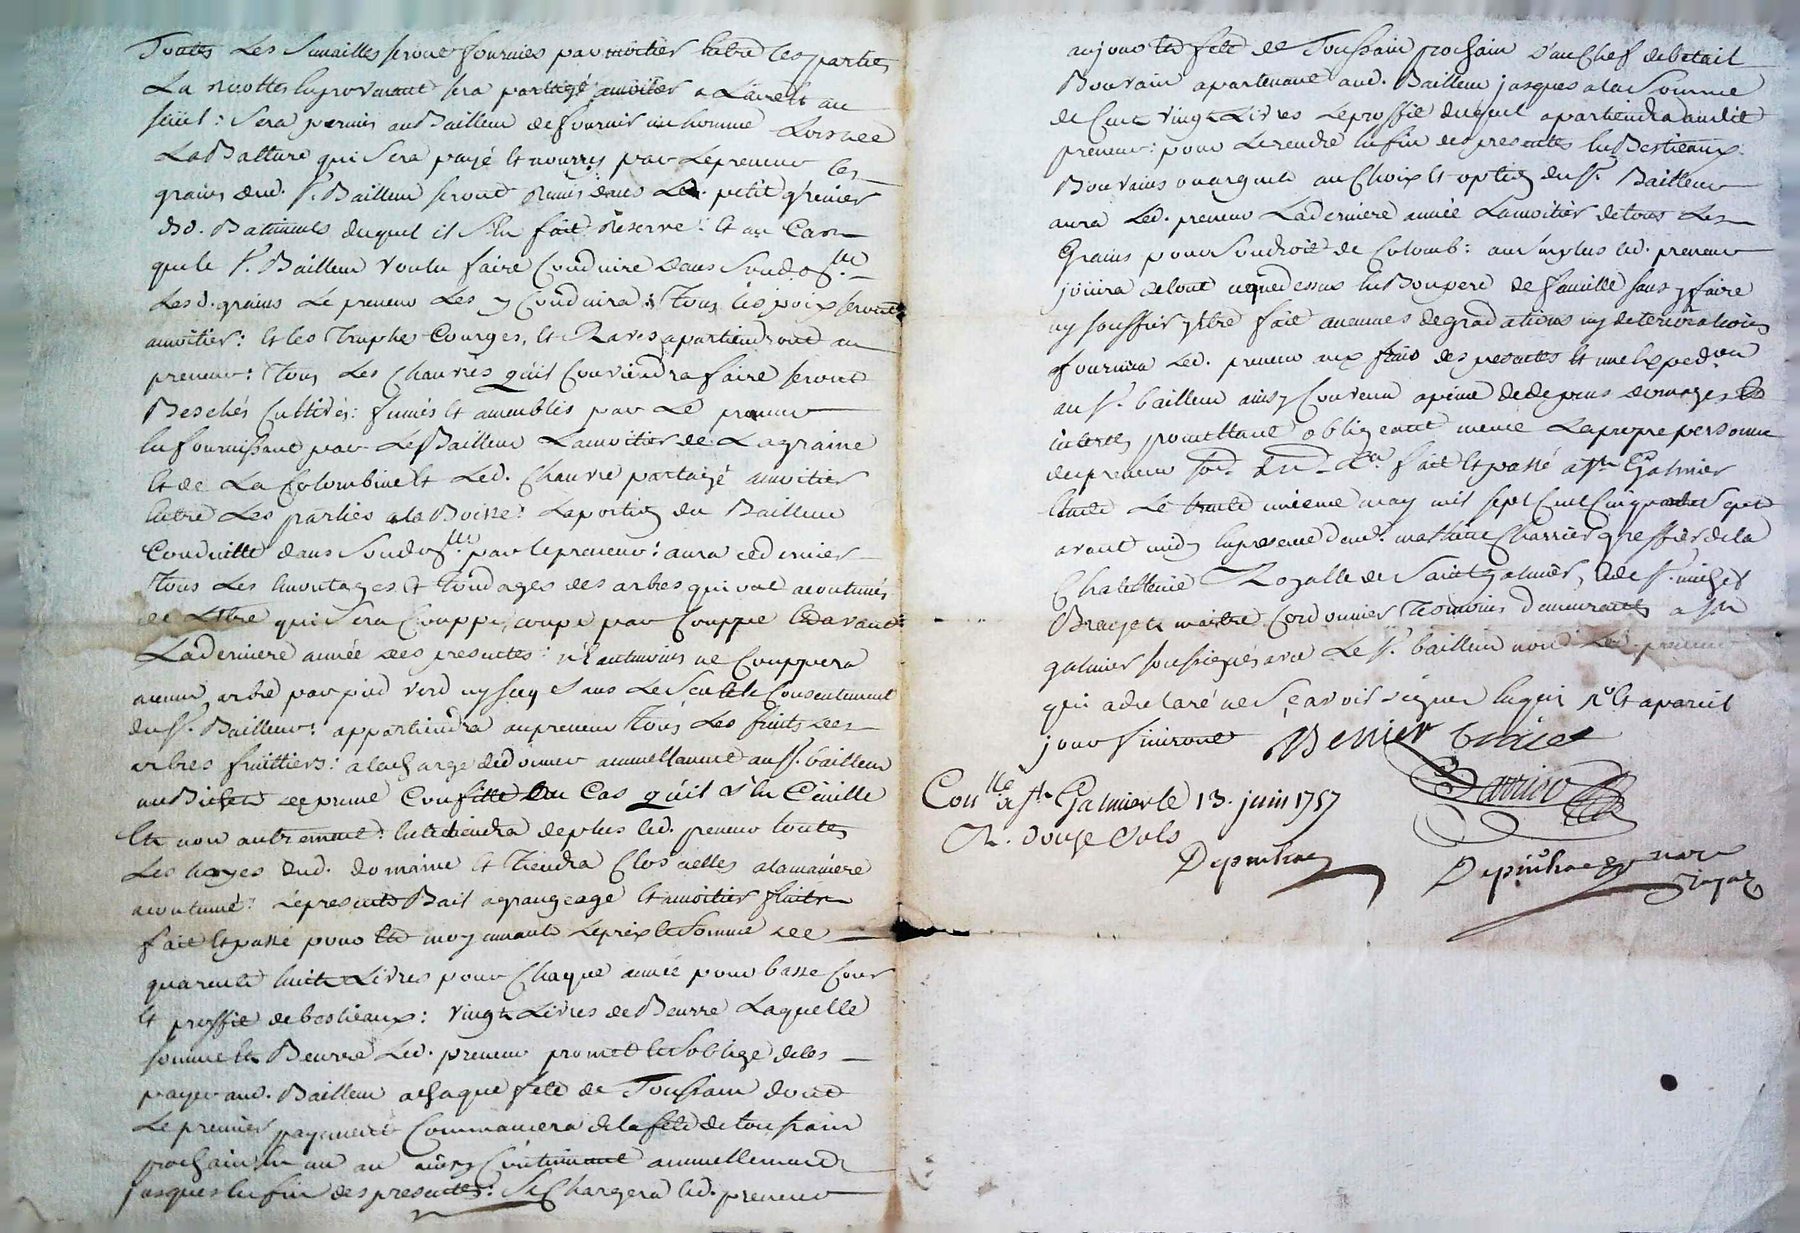 Toutes Les Semailles seront fournies par moitier Entre Les parties
La recolte En provenant sera partagé amoitier a Laire Et au
sera permis au Bailleur de fournir un homme Lors de
La Batture qui Sera payé Et nourry par Le preneur Les
grains dud. Sr. Bailleur seront Remis dans Le petit grenier
dsd. Batiments duquel il S'En fait Reserve : Et au Cas
que le Sr. Bailleur Voulu faire Conduire dans Son dolle
Lesd. grains Le preneur Les y Conduira : Tous les poix seront
amoitier : Et les Truphes Courges, Et Raves apartiendront au
preneur : Tous Les Chanvres qu'il Conviendra faire seront
Beschés Cultivés : fumés Et ameublis par Le preneur
En fournissant par Le Bailleur La moitier de La graine
Et de La Colombine Et Led. Chanvre partagé amoitier
Entre Les parties a la Boisse : La portion du Bailleur
Conduitte dans Son dolle par le preneur : aura ce dernier
Tous Les Emontages Et Tondages des arbres qui ont acoutumés
de L'Etre qui Sera Couppé, coupe par Couppe Et avant
La derniere année des presentes : N'eantmoins ne Couppera
aucun arbre par pied verd ny secq Sans Le Seul Consentement
du Sr. Bailleur : appartiendra au preneur Tous Les fruits des
arbres fruittiers : a la charge de donner annuellement au Sr. bailleur
un Bichet de prune au Cas qu'il S'En Cueille
Et non autrement : Entretiendra de plus led. preneur toutes
Les hayes dud. domaine Et Tiendra Clos icelles a la maniere
acoutumé : Le present Bail a grangeage Et amoitier fruits
fait Et passé pour Et moyennant Le prix Et Somme de
quarente huit Livres pour Chaque année pour basse Cour
Et proffit de bestieaux : vingt Livres de Beurre Laquelle
somme Et Beurre Led. preneur promet Et s'oblige de les
payer aud. Bailleur a chaque fete de Toussain dont
Le premier payement Commancera de la fete de toussain
prochain En un an ainsy Continuant annuellement
jusques En fin des presentes : Se Chargera led. preneur
au jour Et fete de Toussain prochain D'un Chef de betail
Bouvain apartenant aud. Bailleur jusques a la Somme
de Cent vingt Livres Le proffit duquel apartiendra audit
preneur : pour Le rendre En fin des presentes En Bestieaux
Bouvains ou argent au Choix Et option du Sr. Bailleur
aura Led. preneur La derniere année La moitier de tous Les
Grains pour Son droit de Colomb : au surplus led. preneur
jouira de tout ce que dessus En Bon pere de famille sans y faire
ny souffrir Etre fait aucunes degradations ny deteriorations
fournira Led. preneur aux frais des presentes Et une Expedon
au Sr. bailleur ainsy Convenu a peine de depens domages Et
interets promettant obligeant meme La propre personne
du preneur fait Et passé a St Galmier
Etude Le trente unieme may mil sept Cent Cinquante Sept
avant midy En presence de mathieu Charrier greffier de la
Chatellenie Royalle de Saint Galmier, & de Sr. michel
maitre Cordonnier Temoins demeurants a St
galmier soussignés avec Le Sr. bailleur non Led. preneur
qui a declaré ne Sçavoir signer Enquis Rt. Et a pareil
jour finiront
Conlle. a St. Galmier le 13. juin 1757
R. douze Sols